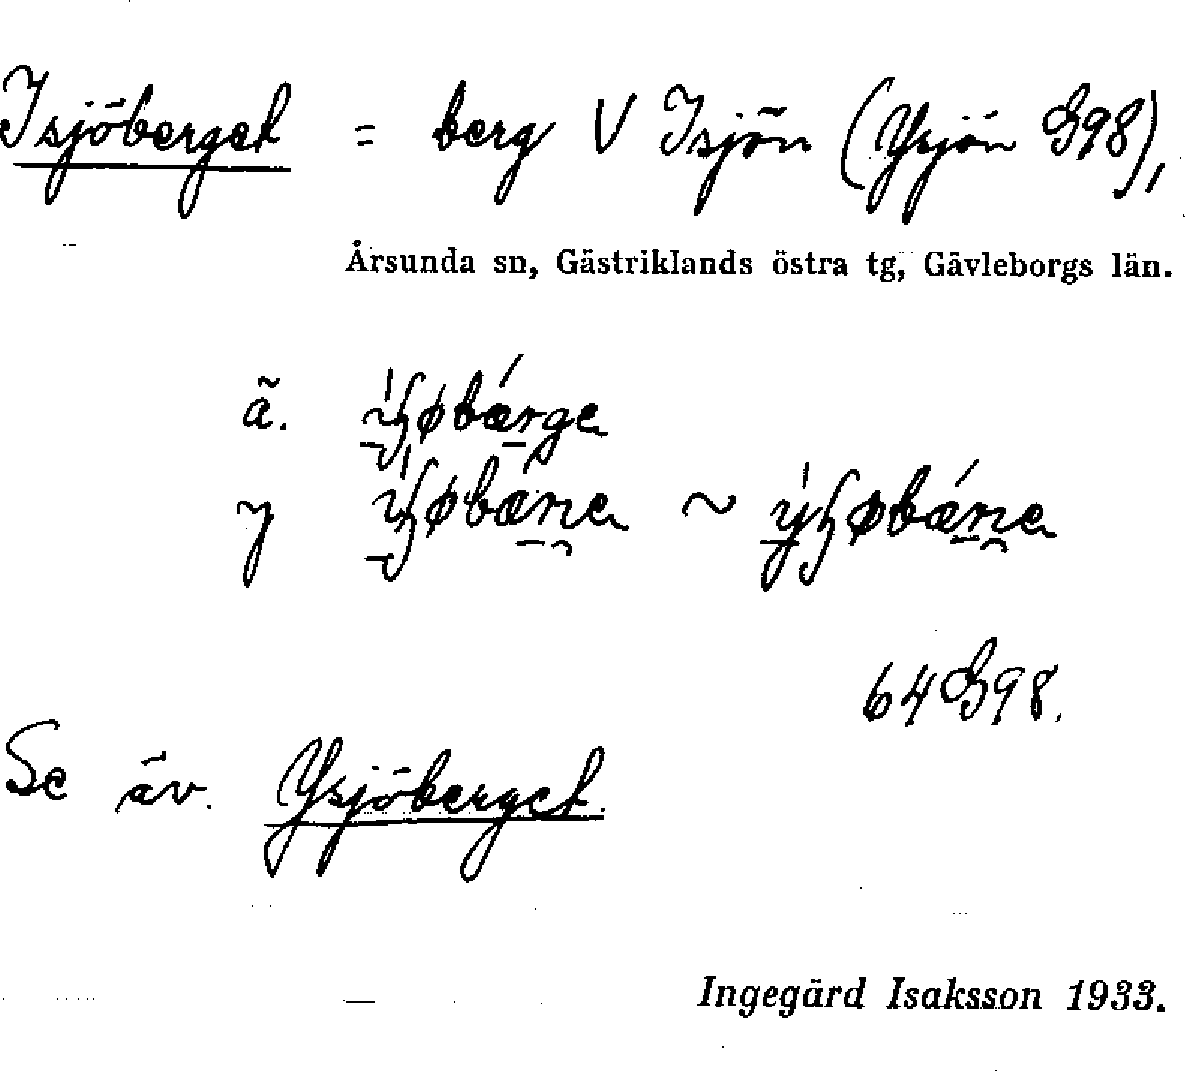 Isjöberget = berg V Isjön (Ysjön G98),
Årsunda sn, Gästriklands östra tg, Gävleborgs län.
ã.
y ~
64 G98.
Se äv. Ysjöberget.
Ingegärd Isaksson 1933.